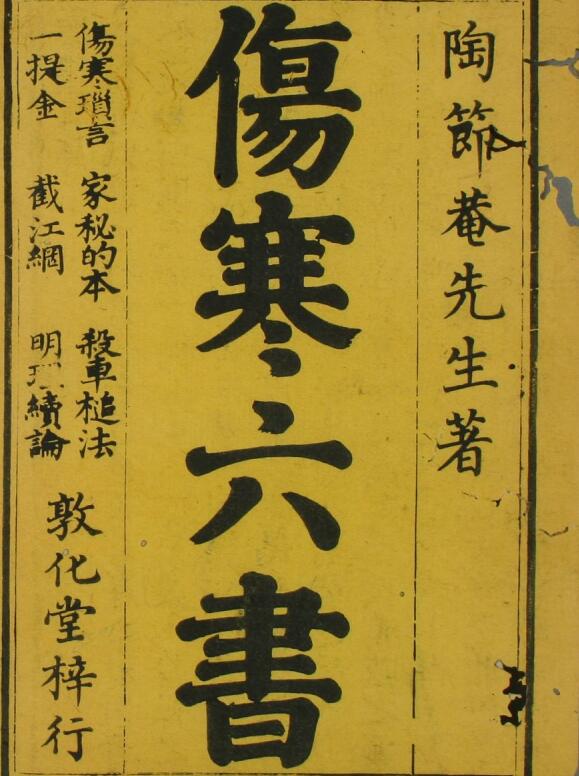 陶節菴先生著
傷寒六書
傷寒瑣言 家秘的本 殺車槌法
一提金 截江網 明理續論
敦化堂梓行